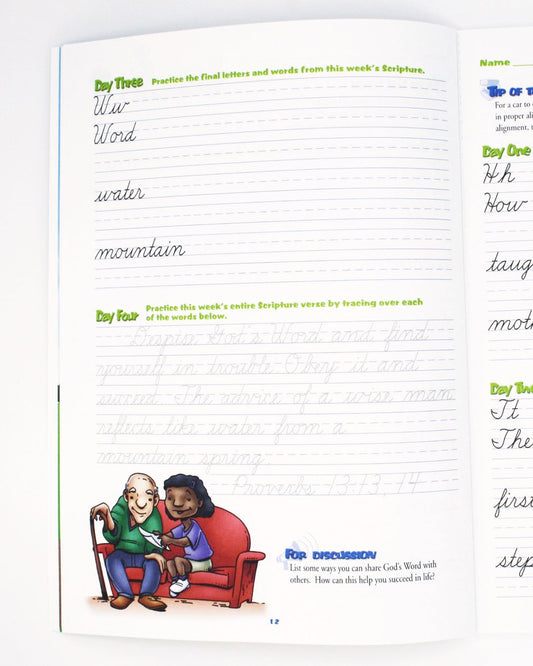 Day Three Practice the final letters and words from this week's Scripture.
Ww
Word
water
mountain
Day Four Practice this week's entire Scripture verse by tracing over each
of the words below.
Despise God's Word and find
yourself in trouble. Obey it and
succeed. The advice of a wise man
refreshes like water from a
mountain spring.
Proverbs 13:13, 14
FOR DISCUSSION
List some ways you can share God's Word with
others. How can this help you succeed in life?
12
Name
TIP OF T
For a car to
in proper ali
alignment, t
Day One
Hh
How
taug
moth
Day Tw
Tt
The
first
step